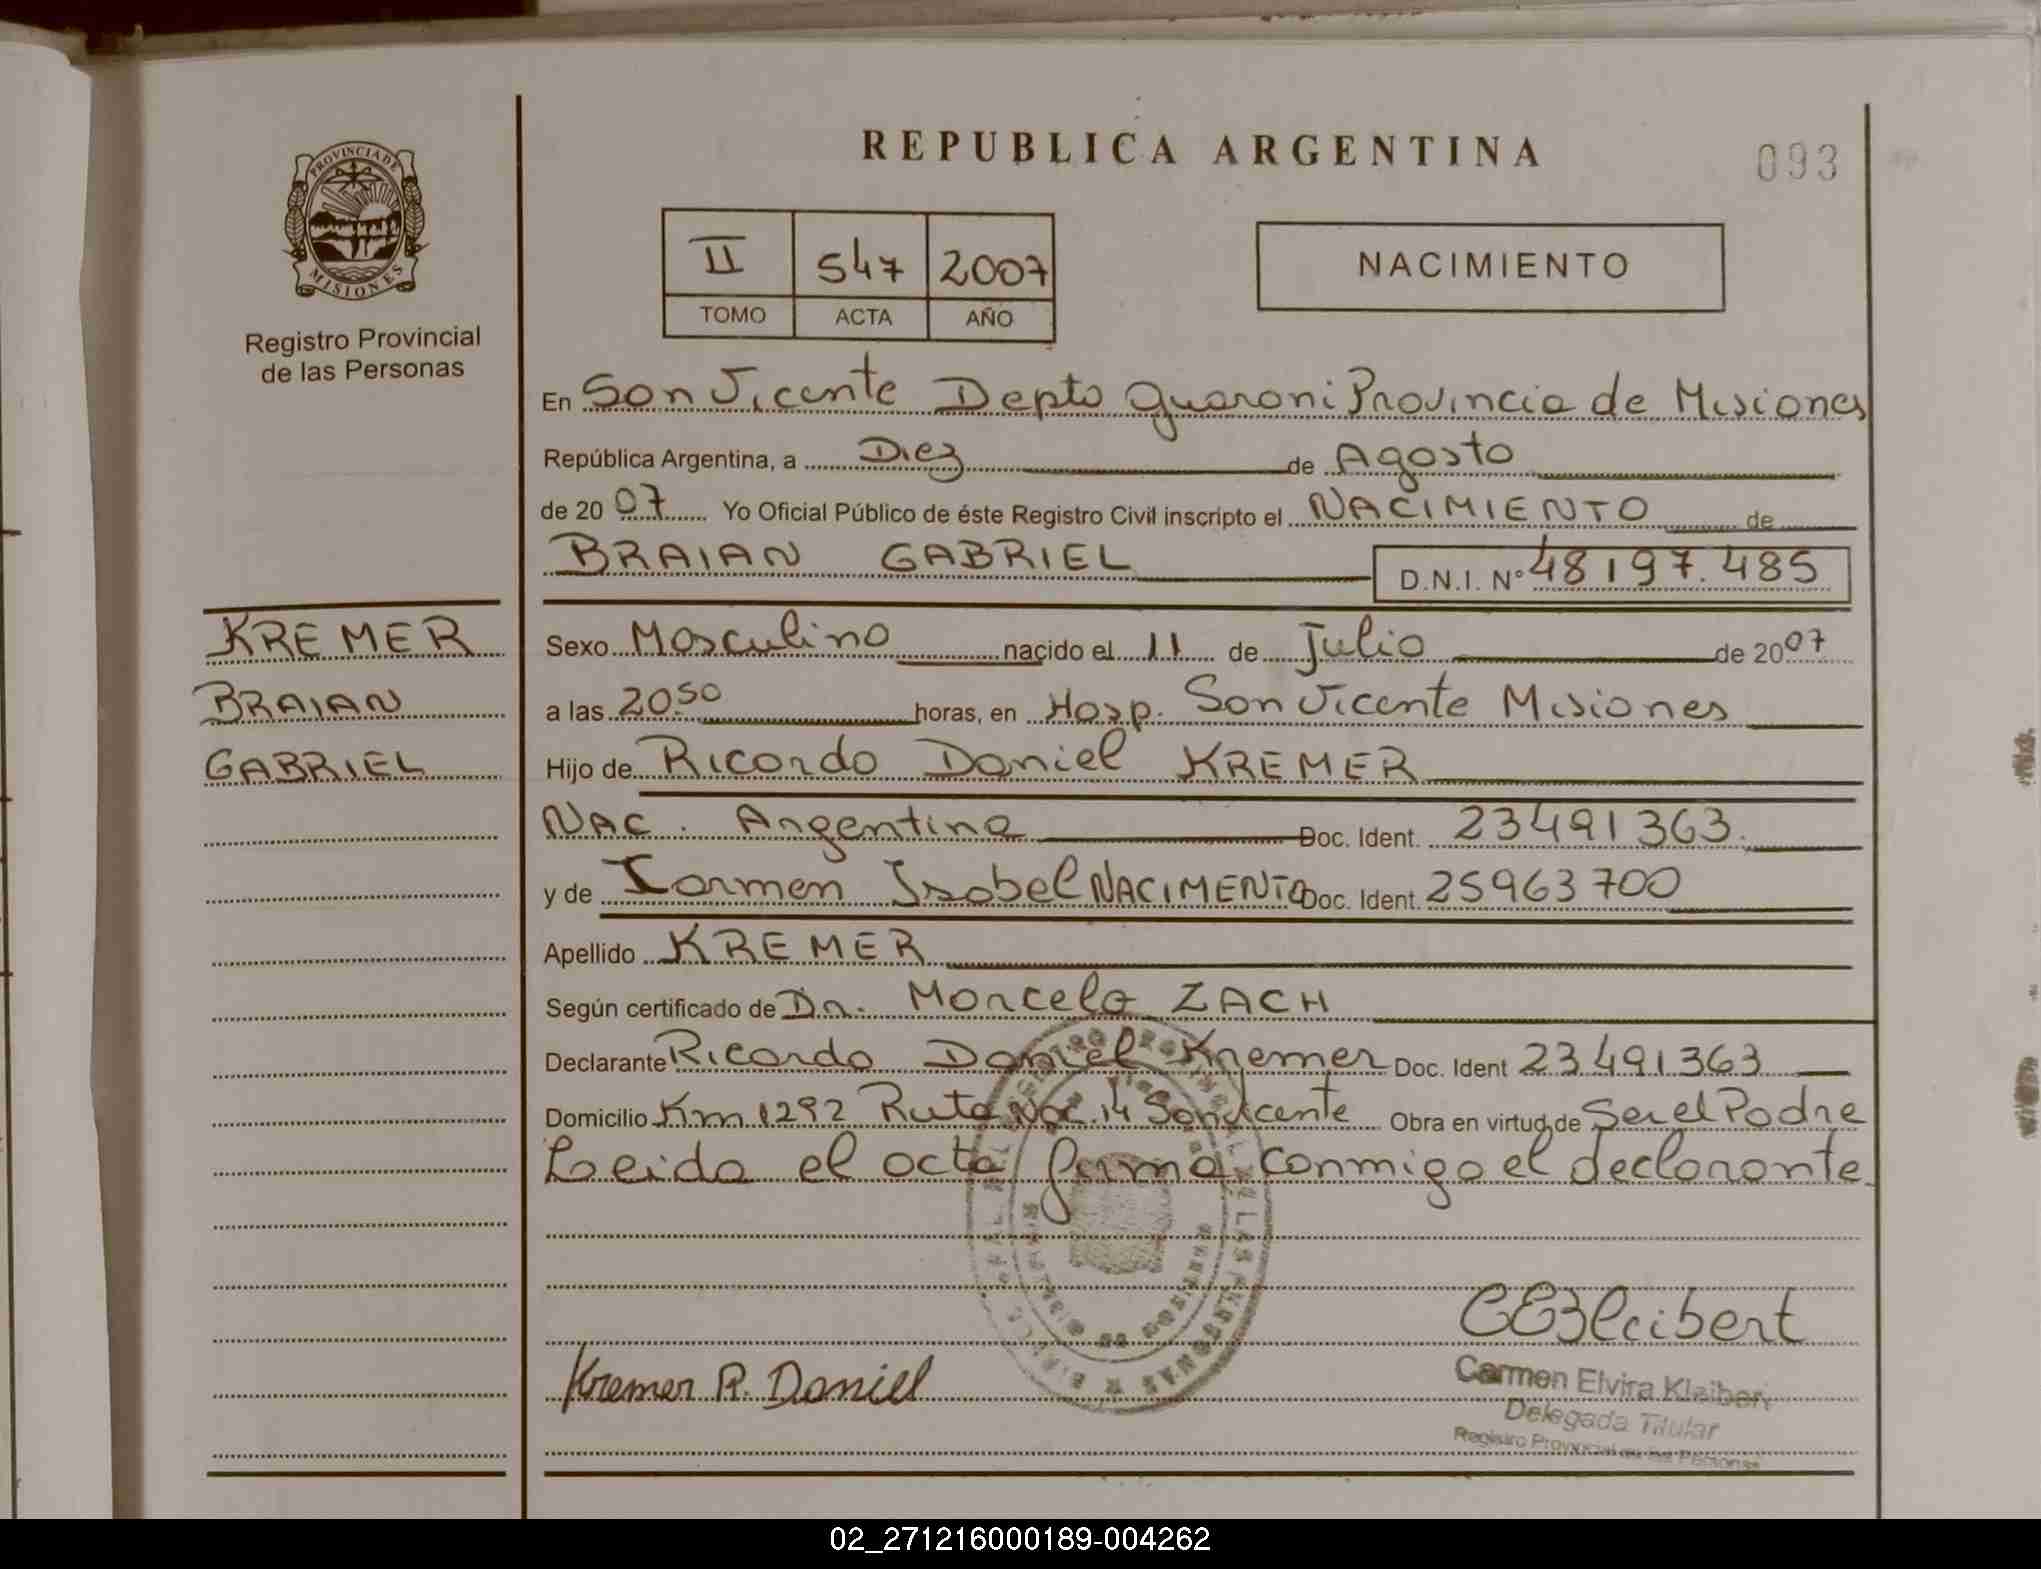 REPUBLICA ARGENTINA
093
PROVINCIA DE
MISIONES
Registro Provincial
de las Personas
II 547 2007
TOMO ACTA AÑO
NACIMIENTO
En San Vicente Depto Guarani Provincia de Misiones
República Argentina, a Diez de Agosto
de 2007 Yo Oficial Público de éste Registro Civil inscripto el NACIMIENTO de
BRAIAN GABRIEL D.N.I. Nº 48197.485
KREMER
BRAIAN
GABRIEL
Sexo Masculino nacido el 11 de Julio de 2007
a las 20.50 horas, en Hosp. San Vicente Misiones
Hijo de Ricardo Daniel KREMER
NAC. Argentina Doc. Ident. 23491363.
y de Carmen Isabel NACIMENTO Doc. Ident. 25963700
Apellido KREMER
Según certificado de Dr. Marcelo ZACH
Declarante Ricardo Daniel Kremer Doc. Ident 23491363
Domicilio Km 1292 Ruta Nac. 14 San Vicente Obra en virtud de Ser el Padre
Leida el acta firma conmigo el declarante.
CEKleibert
Kremer R. Daniel
Carmen Elvira Kleibert
Delegada Titular
Registro Provincial de las Personas
02_271216000189-004262